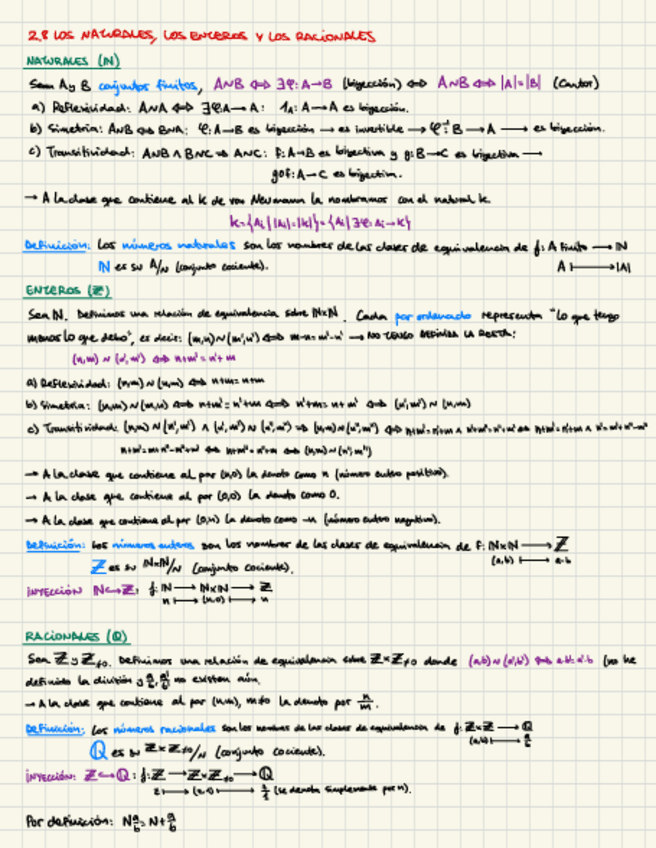 2.8 LOS NATURALES, LOS ENTEROS Y LOS RACIONALES
NATURALES (ℕ)
Sean A y B conjuntos finitos, A∼B ⟺ ∃φ: A→B (biyección) ⟺ A∼B ⟺ |A|=|B| (Cantor)
a) Reflexividad: A∼A ⟺ ∃φ:A→A: 1_A: A→A es biyección.
b) Simetría: A∼B ⟺ B∼A: φ: A→B es biyección → es invertible → φ⁻¹: B→A → es biyección.
c) Transitividad: A∼B ∧ B∼C ⟹ A∼C: f: A→B es biyectiva y g: B→C es biyectiva →
g∘f: A→C es biyectiva.
→ A la clase que contiene al k de von Neumann la nombramos con el natural k.
k={A_i / |A_i|=|k|}={A_i / ∃φ: A_i→k}
Definición: Los números naturales son los nombres de las clases de equivalencia de f: A finito → ℕ
ℕ es su A/∼ (conjunto cociente). A ↦ |A|
ENTEROS (ℤ)
Sea ℕ. Definimos una relación de equivalencia sobre ℕxℕ. Cada par ordenado representa "lo que tengo
menos lo que debo", es decir: (m,n)∼(m',n') ⟺ m-n=m'-n' → NO TENGO DEFINIDA LA RESTA:
(n,m)∼(n',m') ⟺ n+m'=n'+m
a) Reflexividad: (n,m)∼(n,m) ⟺ n+m=n+m
b) Simetría:
c) Transitividad:
→ A la clase que contiene al par (n,0) la denoto como n (número entero positivo).
→ A la clase que contiene al par (0,0) la denoto como 0.
→ A la clase que contiene al par (0,n) la denoto como -n (número entero negativo).
Definición: Los números enteros son los nombres de las clases de equivalencia de f: ℕxℕ → ℤ
ℤ es su ℕxℕ/∼ (conjunto cociente). (a,b) ↦ a-b
INYECCIÓN ℕ↪ℤ: f: ℕ → ℕxℕ → ℤ
n ↦ (n,0) ↦ n
RACIONALES (ℚ)
Sean ℤ y ℤ≠0. Definimos una relación de equivalencia sobre ℤxℤ≠0 donde (a,b)∼(a',b') ⟺ a·b'=a'·b (no he
definido la división y a/b, a'/b' no existen aún.
→ A la clase que contiene al par (n,m), m≠0 la denoto por n/m.
Definición: Los números racionales son los nombres de las clases de equivalencia de f: ℤxℤ → ℚ
(a,b) ↦ a/b
ℚ es su ℤxℤ≠0/∼ (conjunto cociente).
INYECCIÓN: ℤ↪ℚ: f: ℤ → ℤxℤ≠0 → ℚ
(se denota simplemente por n).
Por definición: N a/b = N + a/b